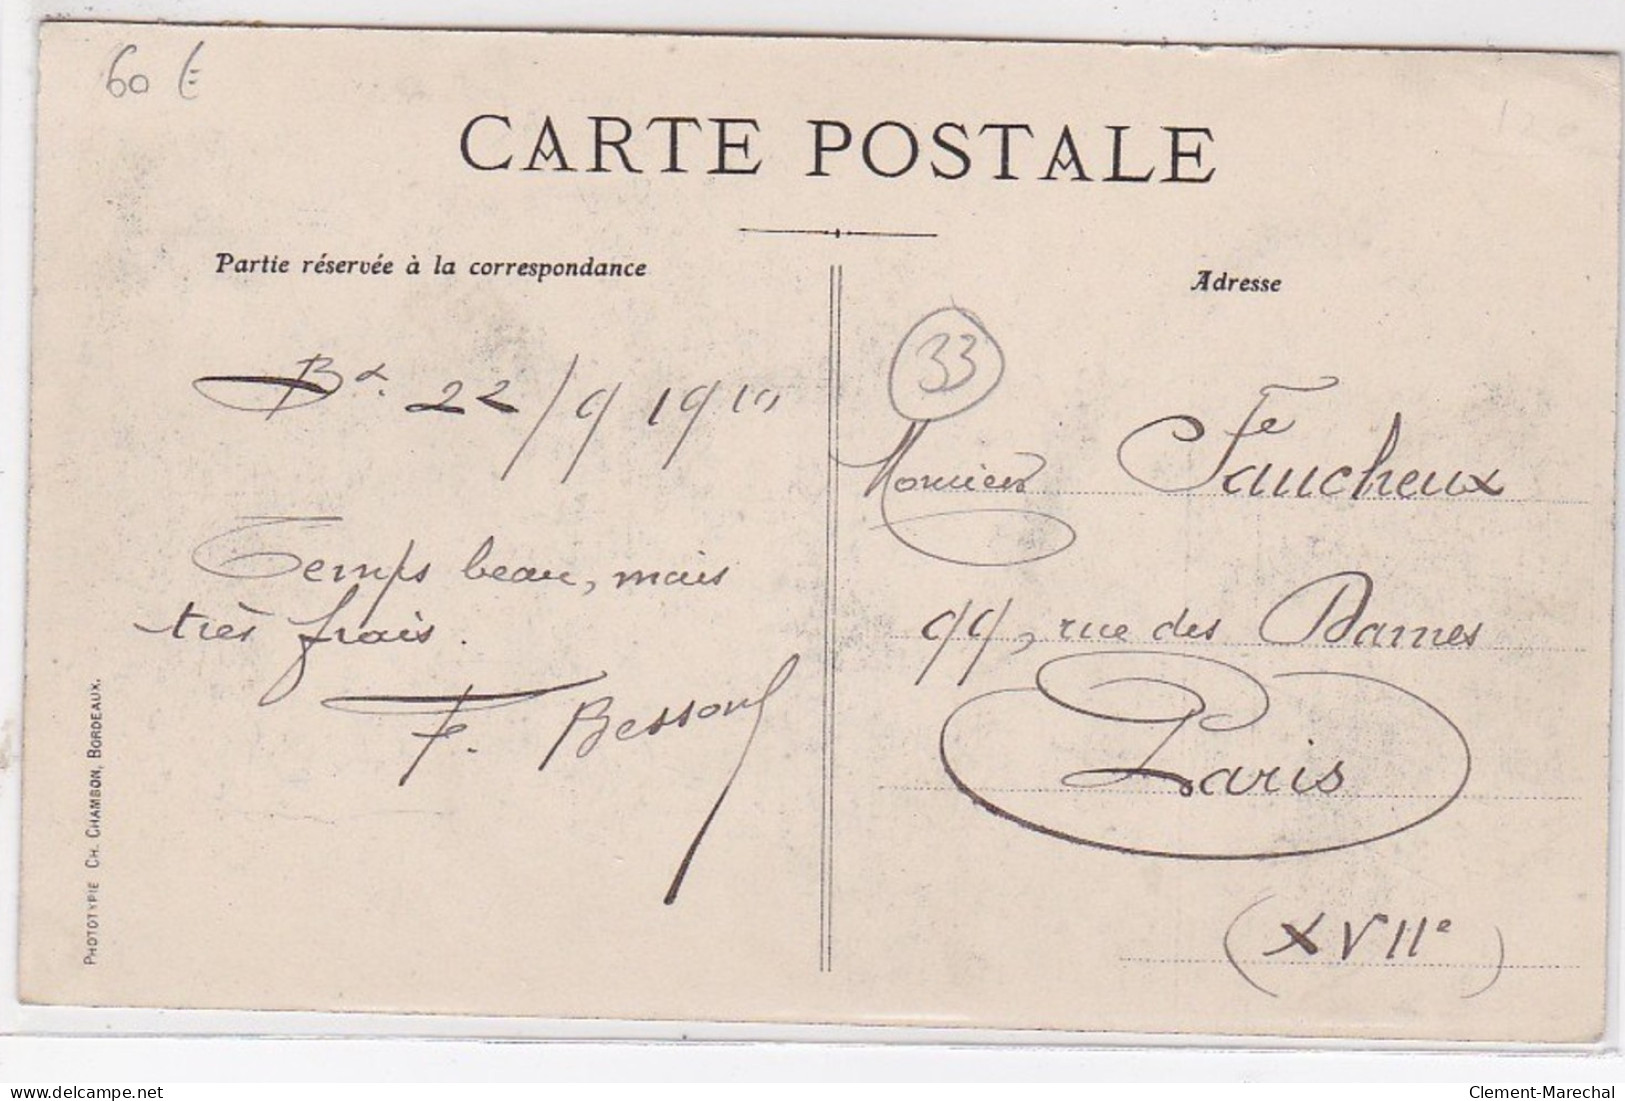 60 €
CARTE POSTALE
Partie réservée à la correspondance
Adresse
33
Bx. 22/9 1910
Monsieur Faucheux
Temps beau, mais
très frais.
99, rue des Dames
F. Besson
Paris
(XVIIe)
PHOTOTYPIE CH. CHAMBON, BORDEAUX.
delcampe.net
Clement-Marechal